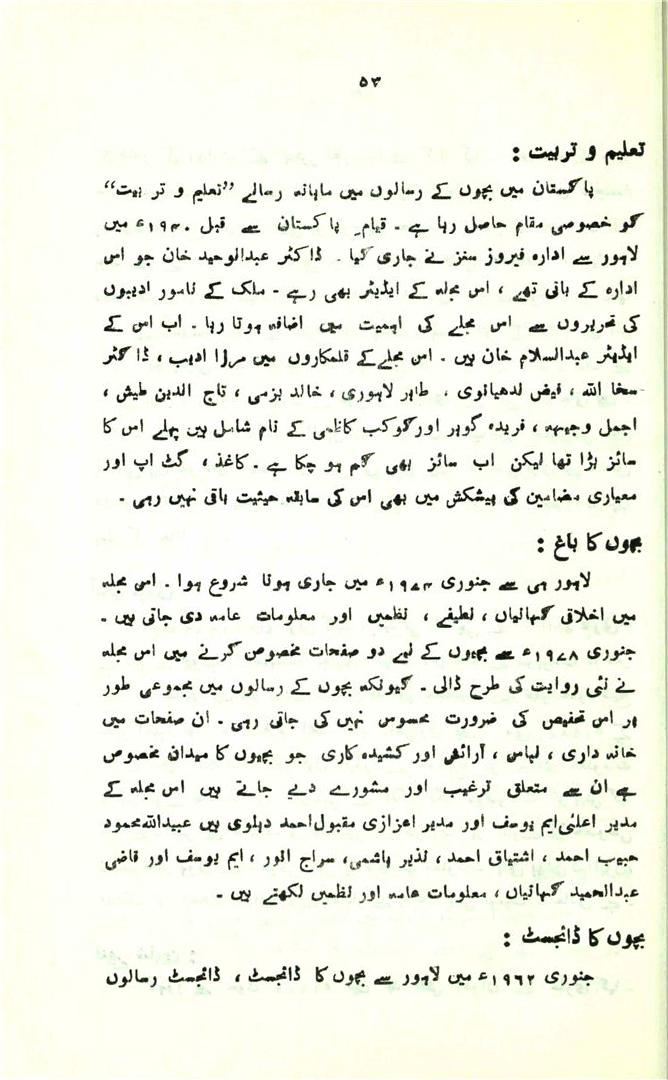 ۵۳
تعلیم و تربیت :
پاکستان میں بچوں کے رسالوں میں ماہانہ رسالے ”تعلیم و تربیت“
کو خصوصی مقام حاصل رہا ہے ۔ قیامِ پاکستان سے قبل ۱۹۴۰ء میں
لاہور سے ادارہ فیروز سنز نے جاری کیا ۔ ڈاکٹر عبدالوحید خان جو اس
ادارہ کے بانی تھے ، اس مجلہ کے ایڈیٹر بھی رہے ۔ ملک کے نامور ادیبوں
کی تحریروں سے اس مجلے کی اہمیت میں اضافہ ہوتا رہا ۔ اب اس کے
ایڈیٹر عبدالسلام خان ہیں ۔ اس مجلے کے قلمکاروں میں مرزا ادیب ، ڈاکٹر
سخا اللہ ، فیض لدھیانوی ، طاہر لاہوری ، خالد بزمی ، تاج الدین طیش ،
اجمل وجیہہ ، فریدہ گوہر اور کوکب کاظمی کے نام شامل ہیں پہلے اس کا
سائز بڑا تھا لیکن اب سائز بھی کم ہو چکا ہے ۔ کاغذ ، گٹ اپ اور
معیاری مضامین کی پیشکش میں بھی اس کی سابقہ حیثیت باقی نہیں رہی ۔
بچوں کا باغ :
لاہور ہی سے جنوری میں جاری ہونا شروع ہوا ۔ اس مجلہ
میں اخلاقی کہانیاں ، لطیفے ، نظمیں اور معلومات عامہ دی جاتی ہیں ۔
جنوری ۱۹۷۸ء سے بچیوں کے لیے دو صفحات مخصوص کرنے میں اس مجلہ
نے نئی روایت کی طرح ڈالی ۔ کیونکہ بچوں کے رسالوں میں مجموعی طور
پر اس تخصیص کی ضرورت محسوس نہیں کی جاتی رہی ۔ ان صفحات میں
خانہ داری ، لباس ، آرائش اور کشیدہ کاری جو بچیوں کا میدان مخصوص
ہے ان سے متعلق ترغیب اور مشورے دیے جاتے ہیں اس مجلہ کے
مدیر اعلیٰ ایم یوسف اور مدیر اعزازی مقبول احمد دہلوی ہیں عبیداللہ محمود
حبیب احمد ، اشتیاق احمد ، نذیر ہاشمی، سراج انور ، ایم یوسف اور قاضی
عبدالحمید کہانیاں ، معلومات عامہ اور نظمیں لکھتے ہیں ۔
بچوں کا ڈائجسٹ :
جنوری ۱۹۶۲ء میں لاہور سے بچوں کا ڈائجسٹ ، ڈائجسٹ رسالوں